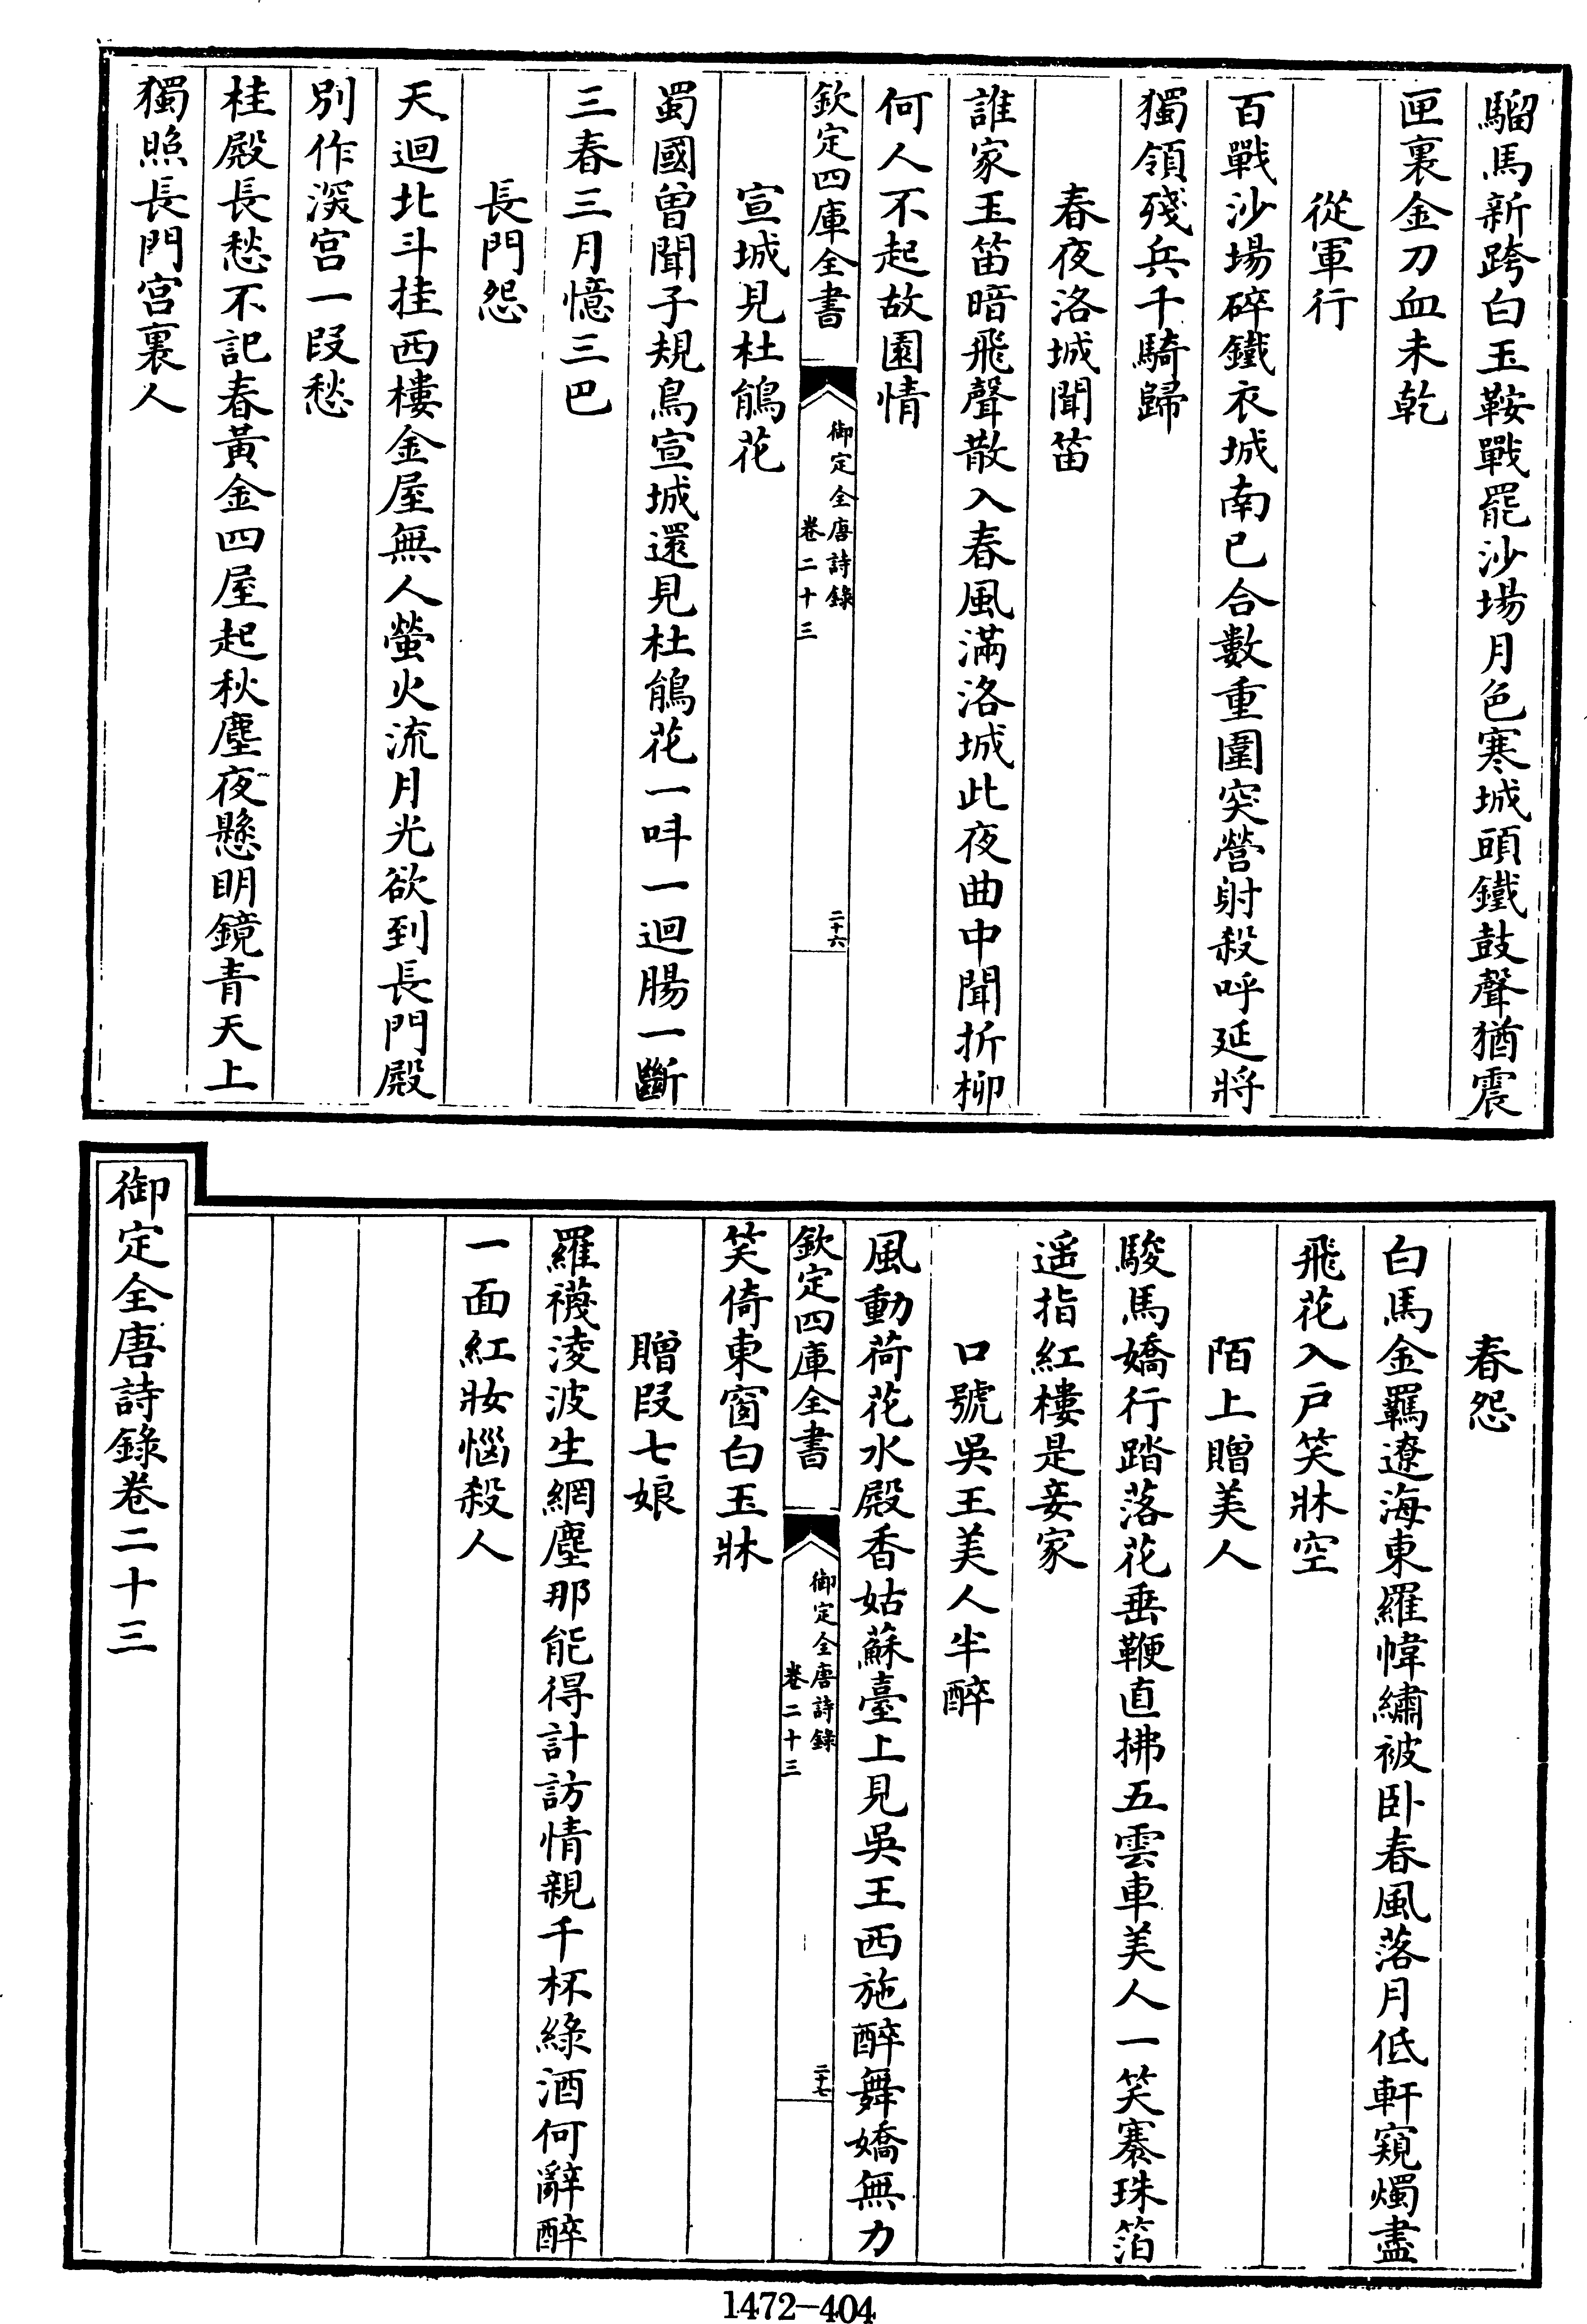 騮馬新跨白玉鞍戰罷沙場月色寒城頭鐵鼓聲猶震
匣裏金刀血未乾
從軍行
百戰沙場碎鐵衣城南已合數重圍突營射殺呼延將
獨領殘兵千騎歸
春夜洛城聞笛
誰家玉笛暗飛聲散入春風滿洛城此夜曲中聞折柳
何人不起故園情
欽定四庫全書
御定全唐詩錄
卷二十三
二十六
宣城見杜鵑花
蜀國曾聞子規鳥宣城還見杜鵑花一呌一迴腸一斷
三春三月憶三巴
長門怨
天迴北斗挂西樓金屋無人螢火流月光欲到長門殿
別作深宮一段愁
桂殿長愁不記春黃金四屋起秋塵夜懸明鏡青天上
獨照長門宮裏人
春怨
白馬金羈遼海東羅幃繡被卧春風落月低軒窺燭盡
飛花入戶笑牀空
陌上贈美人
駿馬嬌行踏落花垂鞭直拂五雲車美人一笑褰珠箔
遥指紅樓是妾家
口號吳王美人半醉
風動荷花水殿香姑蘇臺上見吳王西施醉舞嬌無力
欽定四庫全書
御定全唐詩錄
卷二十三
二十七
笑倚東窗白玉牀
贈段七娘
羅襪淩波生網塵那能得計訪情親千杯綠酒何辭醉
一面紅妝惱殺人
御定全唐詩錄卷二十三
1472-404